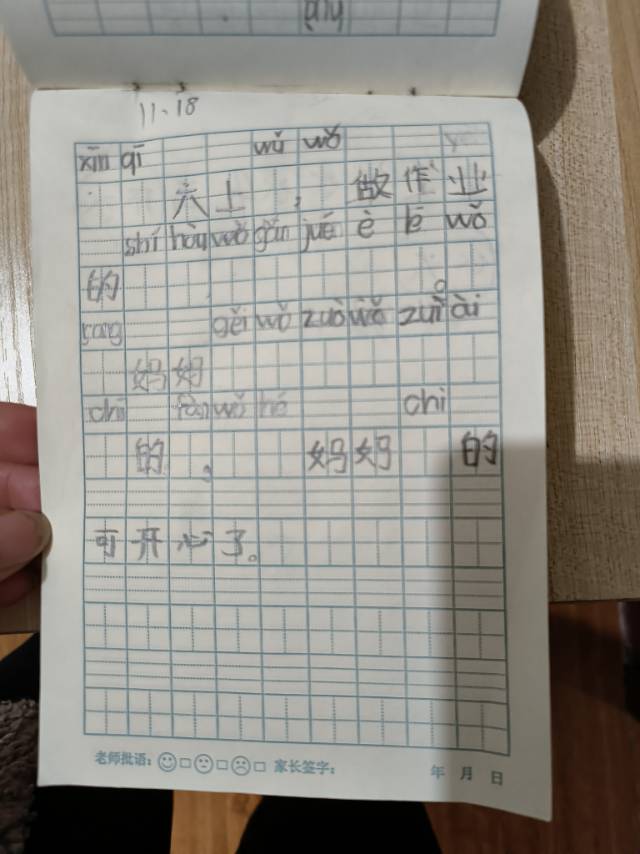 11.18
xīn qī wǔ wǒ
六上，做作业
shí hòu wǒ gǎn jué è lē wǒ
的。
rang gěi wǒ zuò wǒ zuì ài
妈妈
chī fàn wǒ hé chi
的，妈妈的
可开心了。
老师批语： 家长签字： 年 月 日